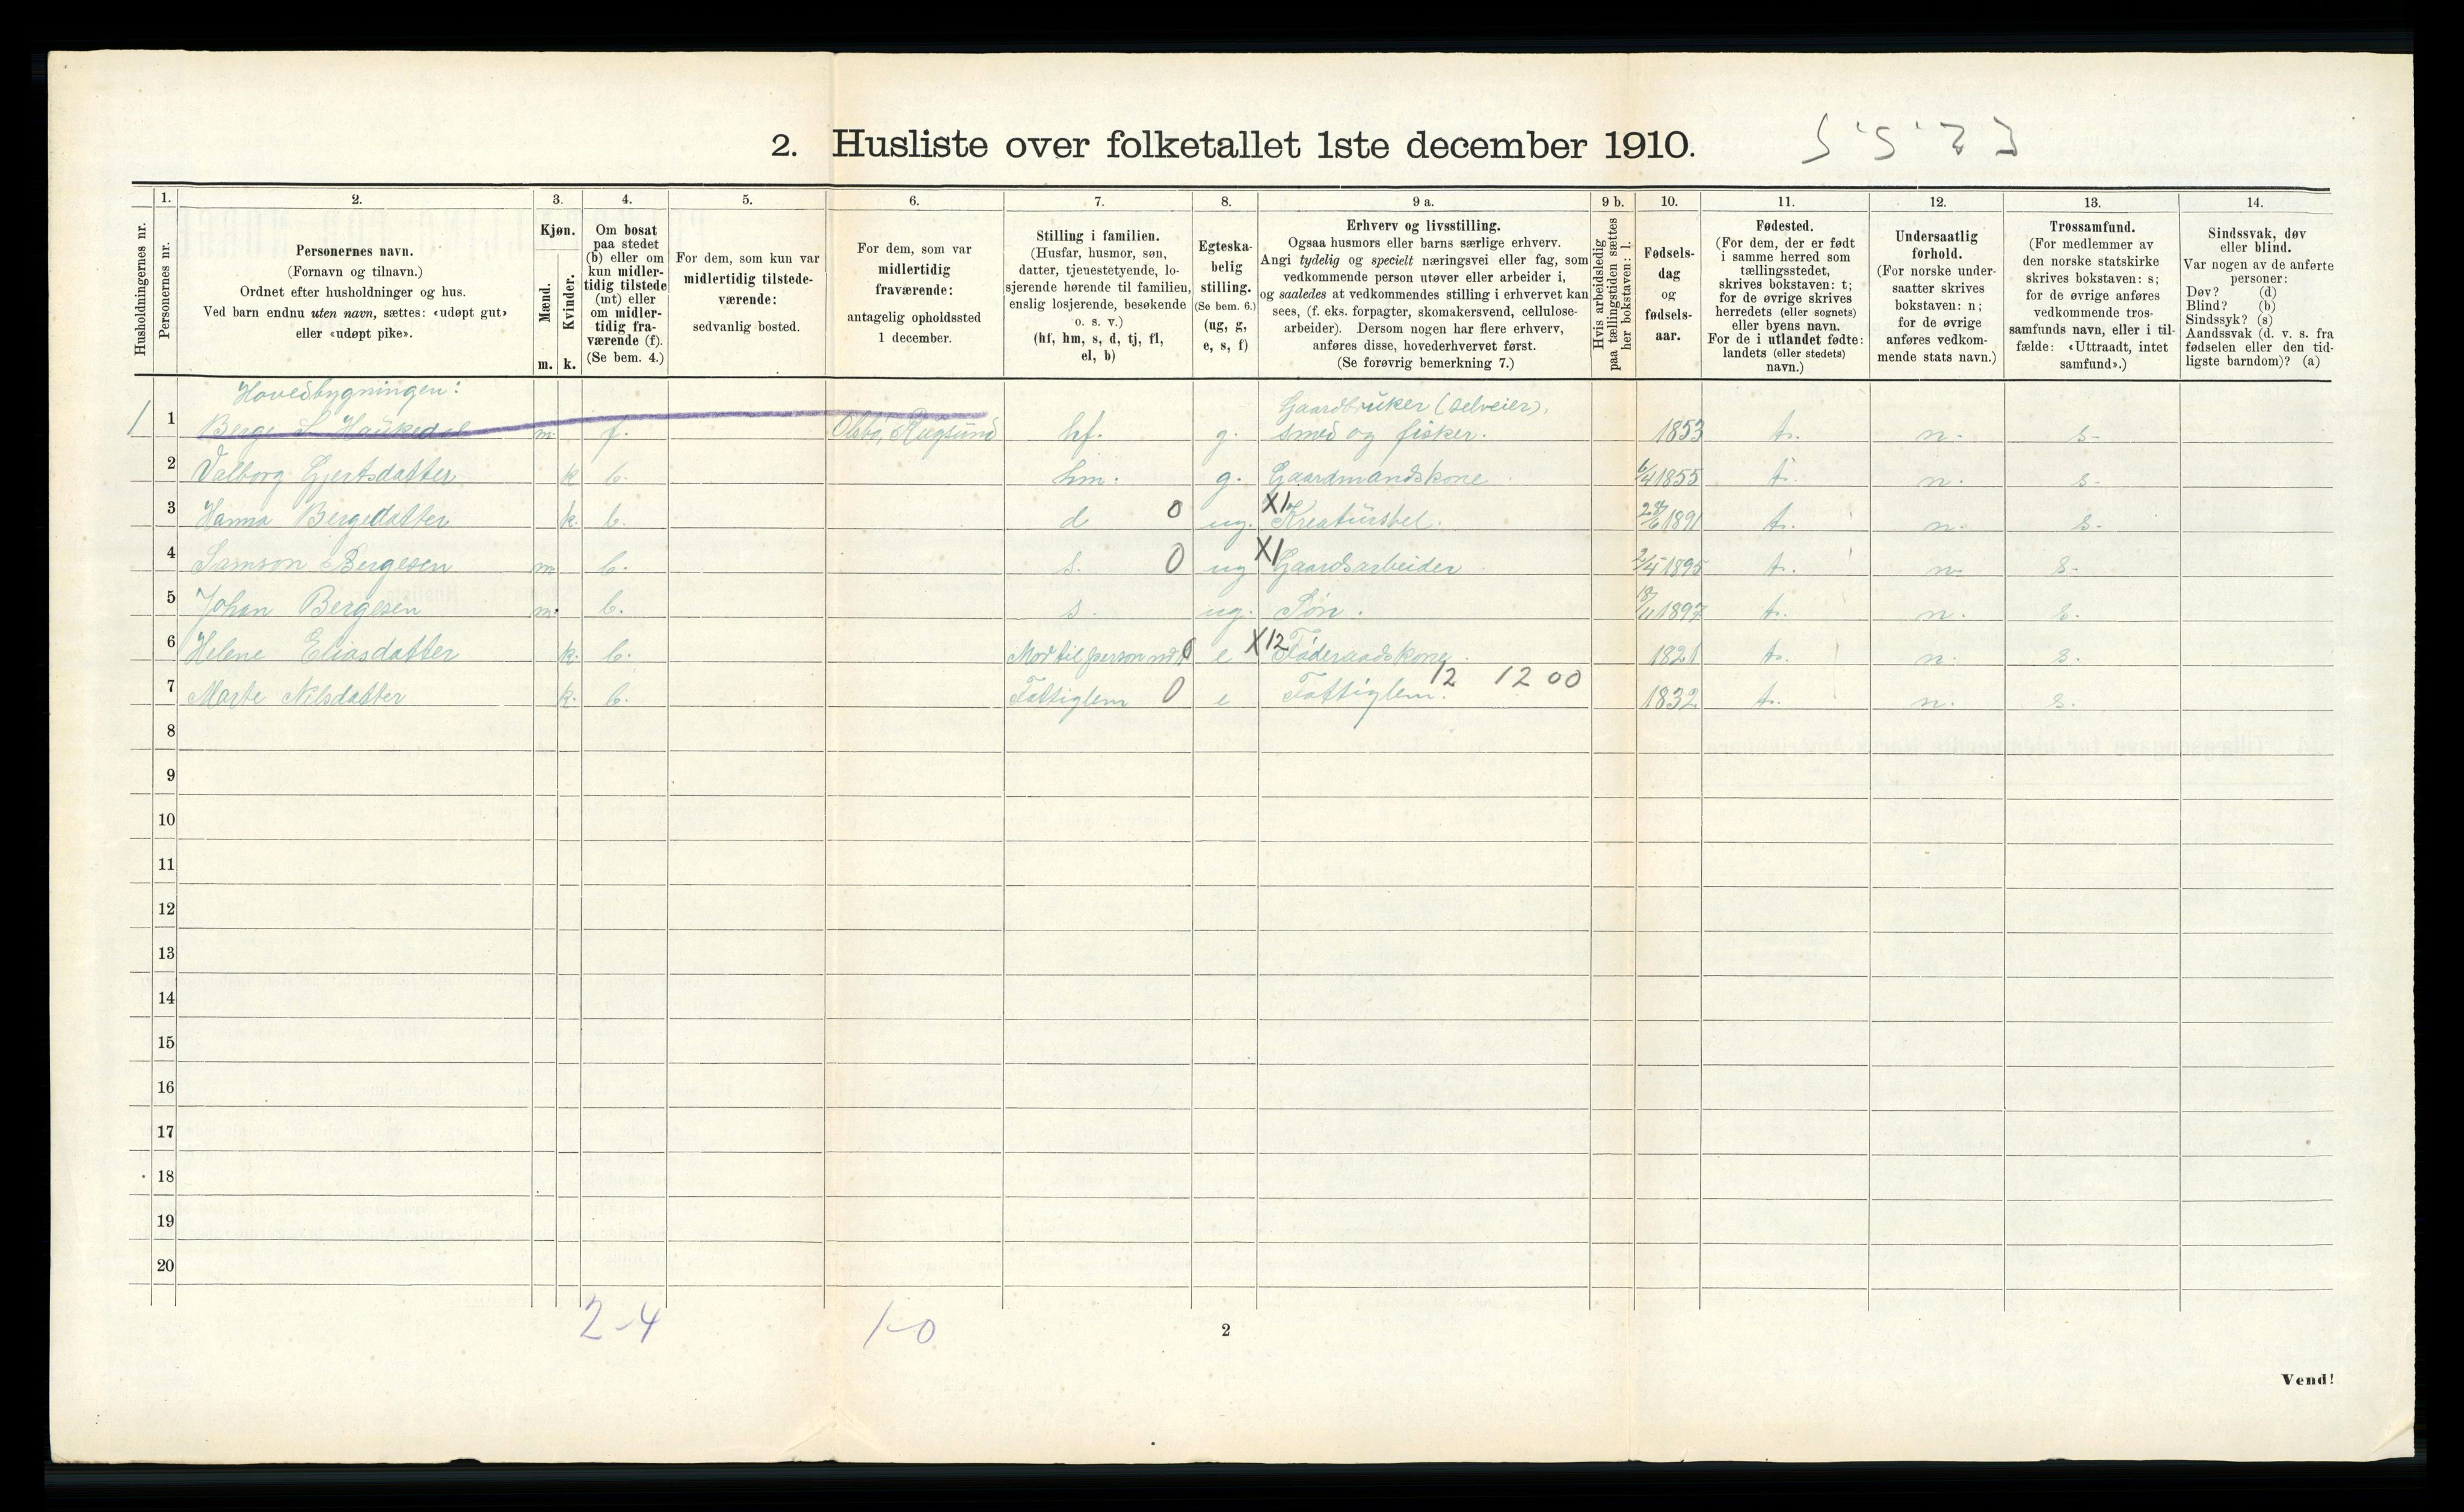 2. Husliste over folketallet 1ste december 1910.
Husholdningernes nr.
1. Personernes nr.
2. Personernes navn.
(Fornavn og tilnavn.)
Ordnet efter husholdninger og hus.
Ved barn endnu uten navn, sættes: «udøpt gut»
eller «udøpt pike».
3. Kjøn.
Mænd. m.
Kvinder. k.
4. Om bosat
paa stedet
(b) eller om
kun midler-
tidig tilstede
(mt) eller
om midler-
tidig fra-
værende (f).
(Se bem. 4.)
5. For dem, som kun var
midlertidig tilstede-
værende:
sedvanlig bosted.
6. For dem, som var
midlertidig
fraværende:
antagelig opholdssted
1 december.
7. Stilling i familien.
(Husfar, husmor, søn,
datter, tjenestetyende, lo-
sjerende hørende til familien,
enslig losjerende, besøkende
o. s. v.)
(hf, hm, s, d, tj, fl,
el, b)
8. Egteska-
belig
stilling.
(Se bem. 6.)
(ug, g,
e, s, f)
9 a. Erhverv og livsstilling.
Ogsaa husmors eller barns særlige erhverv.
Angi tydelig og specielt næringsvei eller fag, som
vedkommende person utøver eller arbeider i,
og saaledes at vedkommendes stilling i erhvervet kan
sees, (f. eks. forpagter, skomakersvend, cellulose-
arbeider). Dersom nogen har flere erhverv,
anføres disse, hovederhvervet først.
(Se forøvrig bemerkning 7.)
9 b. Hvis arbeidsledig
paa tællingstiden sættes
her bokstaven: l.
10. Fødsels-
dag
og
fødsels-
aar.
11. Fødested.
(For dem, der er født
i samme herred som
tællingsstedet,
skrives bokstaven: t;
for de øvrige skrives
herredets (eller sognets)
eller byens navn.
For de i utlandet fødte:
landets (eller stedets)
navn.)
12. Undersaatlig
forhold.
(For norske under-
saatter skrives
bokstaven: n;
for de øvrige
anføres vedkom-
mende stats navn.)
13. Trossamfund.
(For medlemmer av
den norske statskirke
skrives bokstaven: s;
for de øvrige anføres
vedkommende tros-
samfunds navn, eller i til-
fælde: «Uttraadt, intet
samfund».)
14. Sindssvak, døv
eller blind.
Var nogen av de anførte
personer:
Døv? (d)
Blind? (b)
Sindssyk? (s)
Aandssvak (d. v. s. fra
fødselen eller den tid-
ligste barndom)? (a)
Hovedbygningen:
1 1 Berge S Haukedal m. f. Rugsund hf. g. Gaardbruker (selveier),
smed og fisker. 1853 t. n. s.
2 Valborg Gjertsdatter k b. hm. g. Gaardmandskone 6/4 1855 t. n. s.
3 Hanna Bergedatter k. b. d 0 ug. X1 Kreaturstel. 1891 t. n. s.
4 Samson Bergesen m b. s. 0 ug X1 Gaardsarbeider 1895 t. n. s.
5 Johan Bergesen m. b. s. ug. Søn. 18/11 1897 t. n. s.
6 Helene Eliasdatter k. b. Mor til person nr 1 0 e X12 Føderaadskone 1821 t. n. s.
7 Marte Nilsdatter k. b. Fattiglem 0 e Fattiglem. 12 12 00 1832 t. n. s.
8
9
10
11
12
13
14
15
16
17
18
19
20
2-4 1-0
2
Vend!